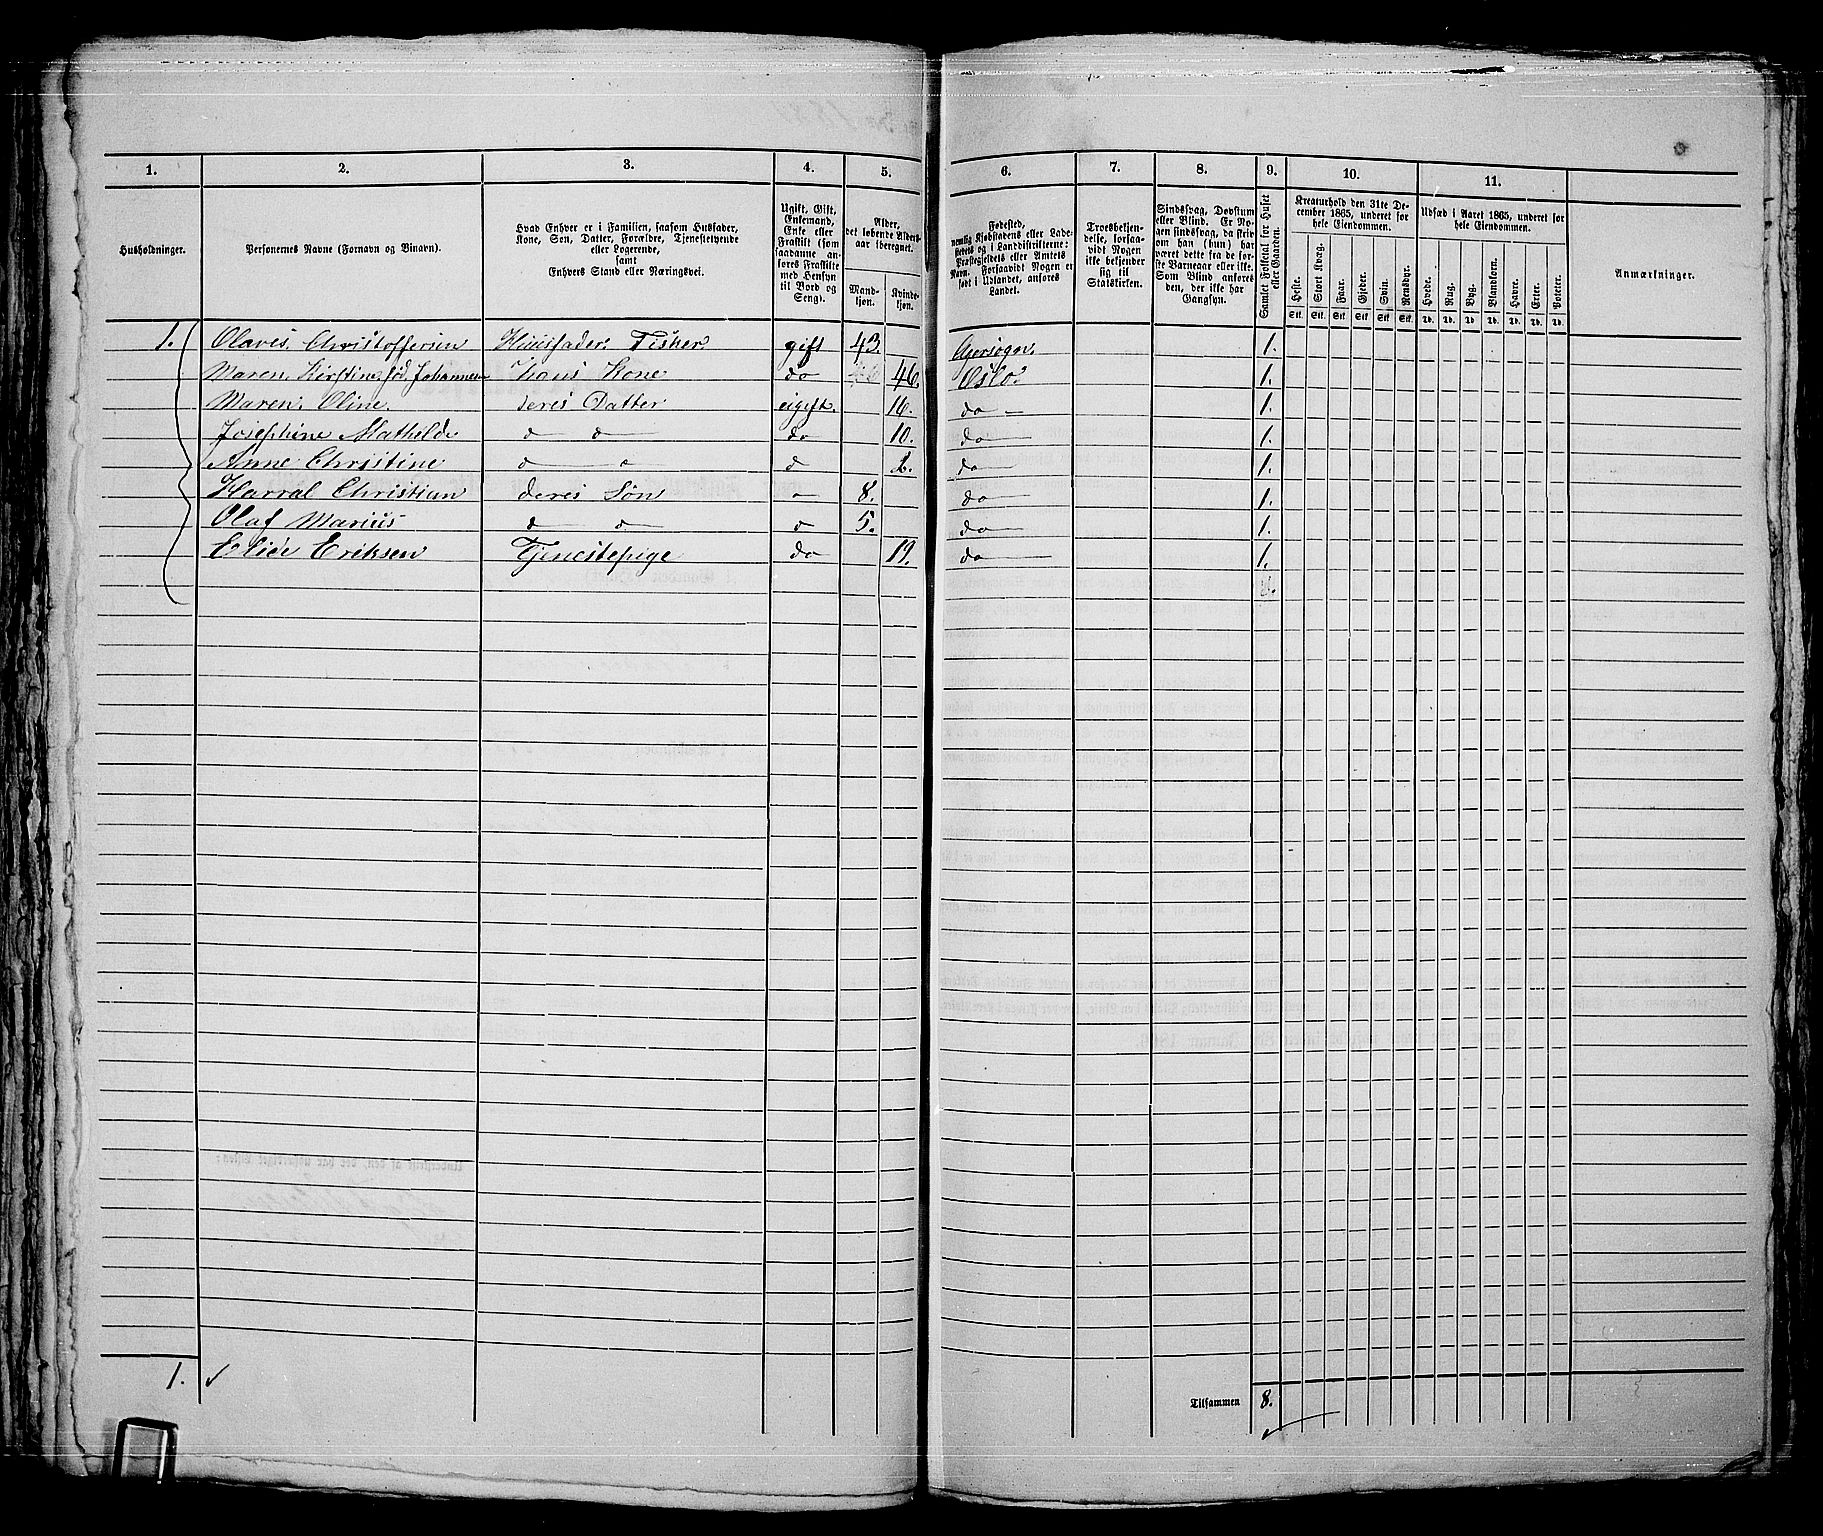 1. 2. 3. 4. 5. 6. 7. 8. 9. 10. 11.
Husholdninger.
Personernes Navne (Fornavn og Binavn).
Hvad Enhver er i Familien, saasom Husfader,
Kone, Søn, Datter, Forældre, Tjenestetyende
eller Logerende,
samt
Enhvers Stand eller Næringsvei.
Ugift, Gift,
Enkemand,
Enke eller
Fraskilt (som
saadanne an-
føres Fraskilte
med Hensyn
til Bord og
Seng).
Alder,
det løbende Alders-
aar iberegnet.
Mand-
kjøn.
Kvinde-
kjøn.
Fødested,
nemlig Kjøbstadens eller Lade-
stedets og i Landdistrikterne:
Præstegjeldets eller Amtets
Navn. Forsaavidt Nogen er
født i Udlandet, anføres
Landet.
Troesbekjen-
delse, forsaa-
vidt Nogen
ikke bekjender
sig til
Statskirken.
Sindssvag, Døvstum
eller Blind. Er No-
gen sindssvag, da skriv
om han (hun) har
været dette fra de før-
ste Barneaar eller ikke.
Som Blind anføres
den, der ikke har
Gangsyn.
Samlet Folketal for Huset
eller Gaarden.
Kreaturhold den 31te De-
cember 1865, underet for
hele Eiendommen.
Heste. Stort Kvæg. Faar. Gjeder. Svin. Rensdyr.
Stk. Stk. Stk. Stk. Stk. Stk.
Udsæd i Aaret 1865, underet for
hele Eiendommen.
Hvede. Rug. Byg. Blandkorn. Havre. Erter. Poteter.
Td. Td. Td. Td. Td. Td. Td.
Anmærkninger.
1. Olaves. Christoffersen Huusfader. Fisker. gift 43. Agersogn. 1.
Maren. Kirstine fød. Johannesen Hans Kone do 46. Oslo. 1.
Maren. Oline. deres Datter ugift. 16. do - 1.
Josephine Mathilde d d do 10. do 1.
Anne Christine d d do 1.
Harral Christian deres Søn 8. do 1.
Olaf Marius d d 5. do 1.
Elise Eriksen Tjenestepige do 19. do 1.
1.
Tilsammen 8.